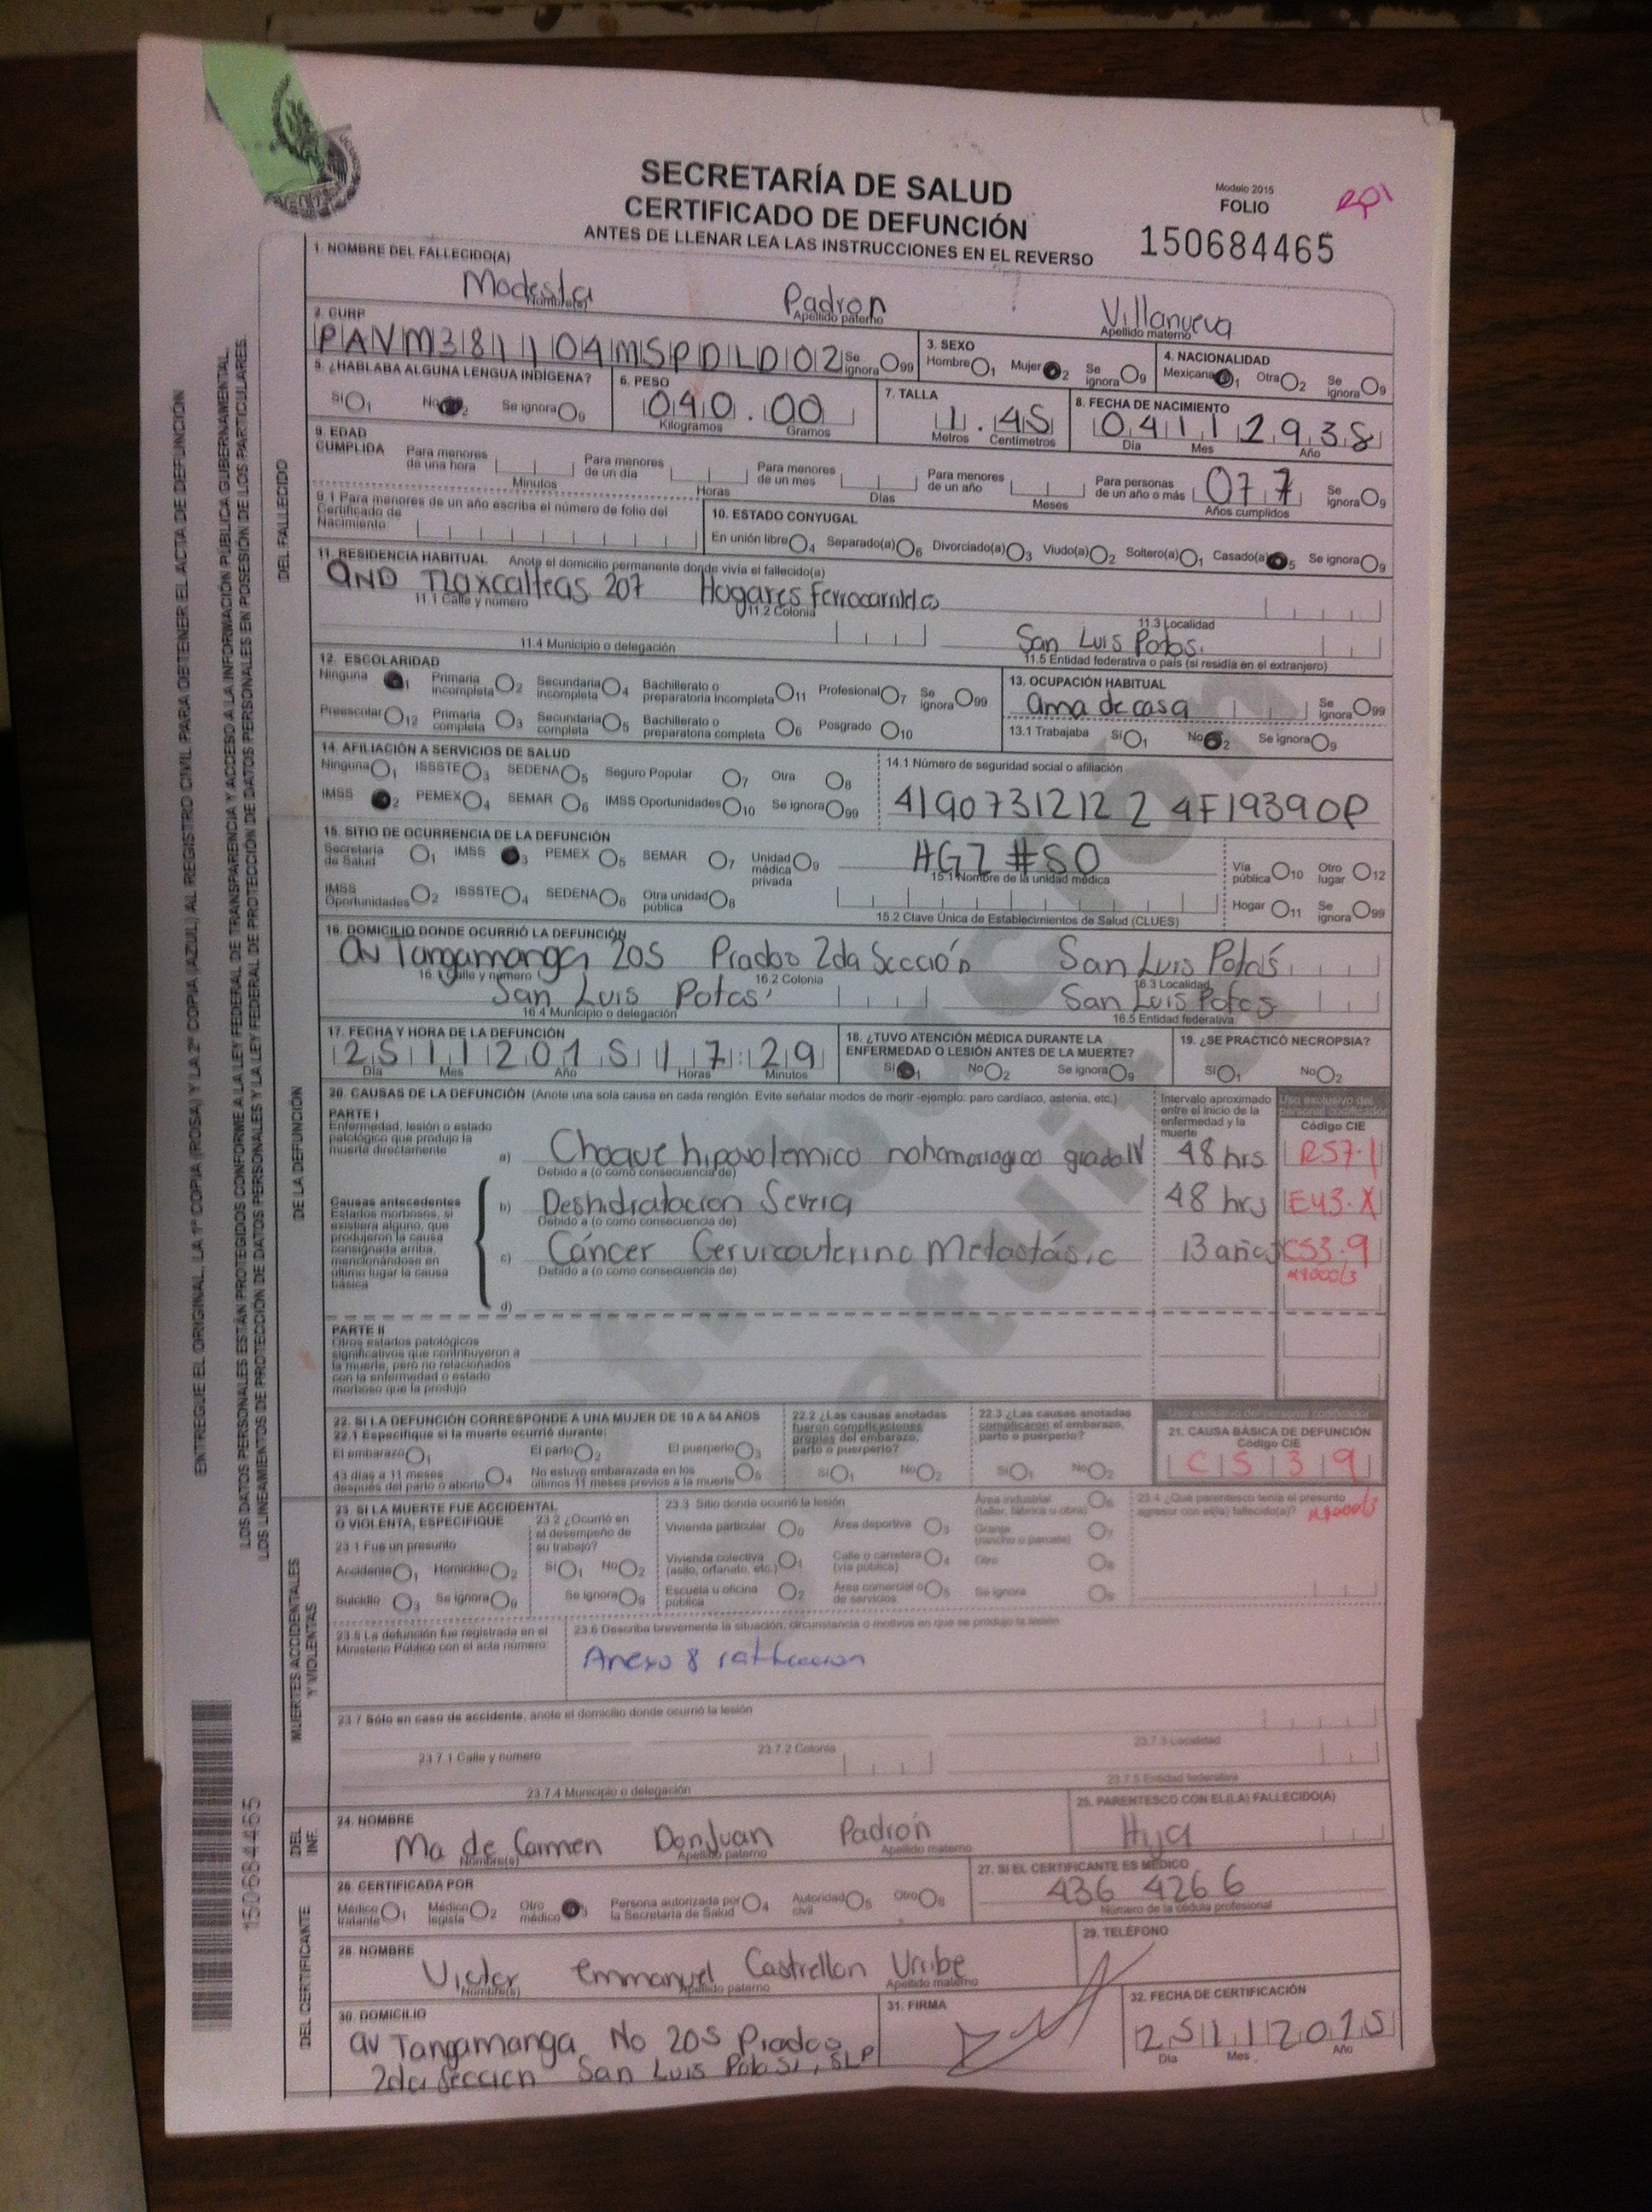 SECRETARÍA DE SALUD
CERTIFICADO DE DEFUNCIÓN
ANTES DE LLENAR LEA LAS INSTRUCCIONES EN EL REVERSO
Modelo 2015
FOLIO
150684465
1. NOMBRE DEL FALLECIDO(A)
Modesta Padron Villanueva
Nombre(s) Apellido paterno Apellido materno
2. CURP
PAVM381104MSPDLD02 Se ignora 99
3. SEXO
Hombre 1 Mujer 2 Se ignora 9
4. NACIONALIDAD
Mexicana 1 Otra 2 Se ignora 9
5. ¿HABLABA ALGUNA LENGUA INDÍGENA?
Sí 1 No 2 Se ignora 9
6. PESO
040.00
Kilogramos Gramos
7. TALLA
1.45
Metros Centímetros
8. FECHA DE NACIMIENTO
0411 2938
Día Mes Año
9. EDAD CUMPLIDA
Para menores de una hora Minutos
Para menores de un día Horas
Para menores de un mes Días
Para menores de un año Meses
Para personas de un año o más 077 Años cumplidos
Se ignora 9
9.1 Para menores de un año escriba el número de folio del Certificado de Nacimiento
10. ESTADO CONYUGAL
En unión libre 4 Separado(a) 6 Divorciado(a) 3 Viudo(a) 2 Soltero(a) 1 Casado(a) 5 Se ignora 9
11. RESIDENCIA HABITUAL Anote el domicilio permanente donde vivía el fallecido(a)
Tlaxcaltecas 207 Hogares Ferrocarriles
11.1 Calle y número 11.2 Colonia 11.3 Localidad
San Luis Potos.
11.4 Municipio o delegación 11.5 Entidad federativa o país (si residía en el extranjero)
12. ESCOLARIDAD
Ninguna 1 Primaria incompleta 2 Secundaria incompleta 4 Bachillerato o preparatoria incompleta 11 Profesional 7 Se ignora 99
Preescolar 12 Primaria completa 3 Secundaria completa 5 Bachillerato o preparatoria completa 6 Posgrado 10
13. OCUPACIÓN HABITUAL
ama de casa Se ignora 99
13.1 Trabajaba Sí 1 No 2 Se ignora 9
14. AFILIACIÓN A SERVICIOS DE SALUD
Ninguna 1 ISSSTE 3 SEDENA 5 Seguro Popular 7 Otra 8
IMSS 2 PEMEX 4 SEMAR 6 IMSS Oportunidades 10 Se ignora 99
14.1 Número de seguridad social o afiliación
4190731212 2 4F19390P
15. SITIO DE OCURRENCIA DE LA DEFUNCIÓN
Secretaría de Salud 1 IMSS 3 PEMEX 5 SEMAR 7 Unidad médica privada 9
IMSS Oportunidades 2 ISSSTE 4 SEDENA 6 Otra unidad pública 8
HGZ #50
15.1 Nombre de la unidad médica
15.2 Clave Única de Establecimientos de Salud (CLUES)
Vía pública 10 Otro lugar 12
Hogar 11 Se ignora 99
16. DOMICILIO DONDE OCURRIÓ LA DEFUNCIÓN
av Tangamanga 205 Prados 2da Sección San Luis Potosí
16.1 Calle y número 16.2 Colonia 16.3 Localidad
San Luis Potos' San Luis Potos
16.4 Municipio o delegación 16.5 Entidad federativa
17. FECHA Y HORA DE LA DEFUNCIÓN
25 11 2015 17:29
Día Mes Año Horas Minutos
18. ¿TUVO ATENCIÓN MÉDICA DURANTE LA ENFERMEDAD O LESIÓN ANTES DE LA MUERTE?
Sí 1 No 2 Se ignora 9
19. ¿SE PRACTICÓ NECROPSIA?
Sí 1 No 2
20. CAUSAS DE LA DEFUNCIÓN (Anote una sola causa en cada renglón. Evite señalar modos de morir -ejemplo: paro cardíaco, astenia, etc.)
Intervalo aproximado entre el inicio de la enfermedad y la muerte
Uso exclusivo del personal codificador
Código CIE
PARTE I
Enfermedad, lesión o estado patológico que produjo la muerte directamente
a) Choque hipovolemico nohemorragico grado IV 48 hrs R57.1
Debido a (o como consecuencia de)
Causas antecedentes
Estados morbosos, si existiera alguno, que produjeron la causa consignada arriba, mencionándose en último lugar la causa básica
b) Deshidratacion Severa 48 hrs E43.X
Debido a (o como consecuencia de)
c) Cáncer Cervicouterino Metastásic 13 años C53.9
Debido a (o como consecuencia de) M8000/3
d)
PARTE II
Otros estados patológicos significativos que contribuyeron a la muerte, pero no relacionados con la enfermedad o estado morboso que la produjo
22. SI LA DEFUNCIÓN CORRESPONDE A UNA MUJER DE 10 A 54 AÑOS
22.1 Especifique si la muerte ocurrió durante:
El embarazo 1 El parto 2 El puerperio 3
43 días a 11 meses después del parto o aborto 4 No estuvo embarazada en los últimos 11 meses previos a la muerte 5
22.2 ¿Las causas anotadas fueron complicaciones propias del embarazo, parto o puerperio?
Sí 1 No 2
22.3 ¿Las causas anotadas complicaron el embarazo, parto o puerperio?
Sí 1 No 2
Uso exclusivo del personal codificador
21. CAUSA BÁSICA DE DEFUNCIÓN
Código CIE
C539
M8000/3
23. SI LA MUERTE FUE ACCIDENTAL O VIOLENTA, ESPECIFIQUE
23.1 Fue un presunto
Accidente 1 Homicidio 2
Suicidio 3 Se ignora 9
23.2 ¿Ocurrió en el desempeño de su trabajo?
Sí 1 No 2
Se ignora 9
23.3 Sitio donde ocurrió la lesión
Vivienda particular 0 Área deportiva 3 Área industrial (taller, fábrica u obra) 6
Vivienda colectiva (asilo, orfanato, etc.) 1 Calle o carretera (vía pública) 4 Granja (rancho o parcela) 7
Escuela u oficina pública 2 Área comercial o de servicios 5 Otro 8
Se ignora 9
23.4 ¿Qué parentesco tenía el presunto agresor con el(la) fallecido(a)?
23.5 La defunción fue registrada en el Ministerio Público con el acta número:
23.6 Describa brevemente la situación, circunstancia o motivos en que se produjo la lesión
Anexo 8
23.7 Sólo en caso de accidente, anote el domicilio donde ocurrió la lesión
23.7.1 Calle y número 23.7.2 Colonia 23.7.3 Localidad
23.7.4 Municipio o delegación 23.7.5 Entidad federativa
24. NOMBRE
Ma de Carmen DonJuan Padrón
Nombre(s) Apellido paterno Apellido materno
25. PARENTESCO CON EL(LA) FALLECIDO(A)
Hija
26. CERTIFICADA POR
Médico tratante 1 Médico legista 2 Otro médico 3 Persona autorizada por la Secretaría de Salud 4 Autoridad civil 5 Otro 8
27. SI EL CERTIFICANTE ES MÉDICO
436 4266
Número de la cédula profesional
28. NOMBRE
Victor Emmanuel Castrellon Uribe
Nombre(s) Apellido paterno Apellido materno
29. TELÉFONO
30. DOMICILIO
av Tangamanga No 205 Prados
2da Seccion San Luis Potosi, SLP
31. FIRMA
32. FECHA DE CERTIFICACIÓN
25 11 2015
Día Mes Año
DEL FALLECIDO
DE LA DEFUNCIÓN
MUERTES ACCIDENTALES Y VIOLENTAS
DEL INF.
DEL CERTIFICANTE
ENTREGUE EL ORIGINAL, LA 1ª COPIA (ROSA) Y LA 2ª COPIA (AZUL) AL REGISTRO CIVIL PARA OBTENER EL ACTA DE DEFUNCIÓN
LOS DATOS PERSONALES ESTÁN PROTEGIDOS CONFORME A LA LEY FEDERAL DE TRANSPARENCIA Y ACCESO A LA INFORMACIÓN PÚBLICA GUBERNAMENTAL,
LOS LINEAMIENTOS DE PROTECCIÓN DE DATOS PERSONALES Y LA LEY FEDERAL DE PROTECCIÓN DE DATOS PERSONALES EN POSESIÓN DE LOS PARTICULARES.
150684465